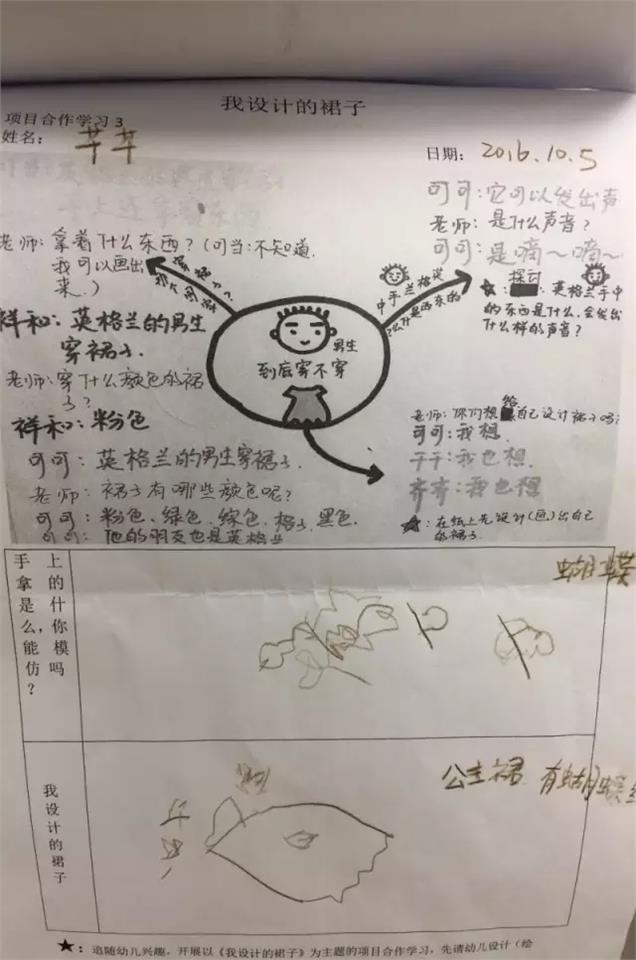 我设计的裙子
项目合作学习 3
姓名: 芊芊
日期: 2016.10.5
可可:它可以发出声
老师:是什么声音?
可可:是嘀~嘀~
老师:拿着什么东西?(可当:不知道.
我可以画出
来.)
穿裙子?
探讨
★: 英格兰手中
的东西是什么.会发出
什么样的声音?
祥和:英格兰的男生
穿裙子.
男生
到底穿不穿
老师:穿什么颜色的裙
子?
祥和:粉色
给
老师:你们想自己设计裙子吗?
可可:我想.
芊芊:我也想.
齐齐:我也想
★:在纸上先设计(画)出自己
的裙子.
可可:英格兰的男生穿裙子.
老师:裙子有哪些颜色呢?
可可:粉色、绿色、综色、格子、黑色.
可可:他的朋友也是英格兰
手上拿的是什么,你能模仿吗?
蝴蝶
我设计的裙子
公主裙 有蝴蝶
★:追随幼儿兴趣,开展以《我设计的裙子》为主题的项目合作学习,先请幼儿设计(绘